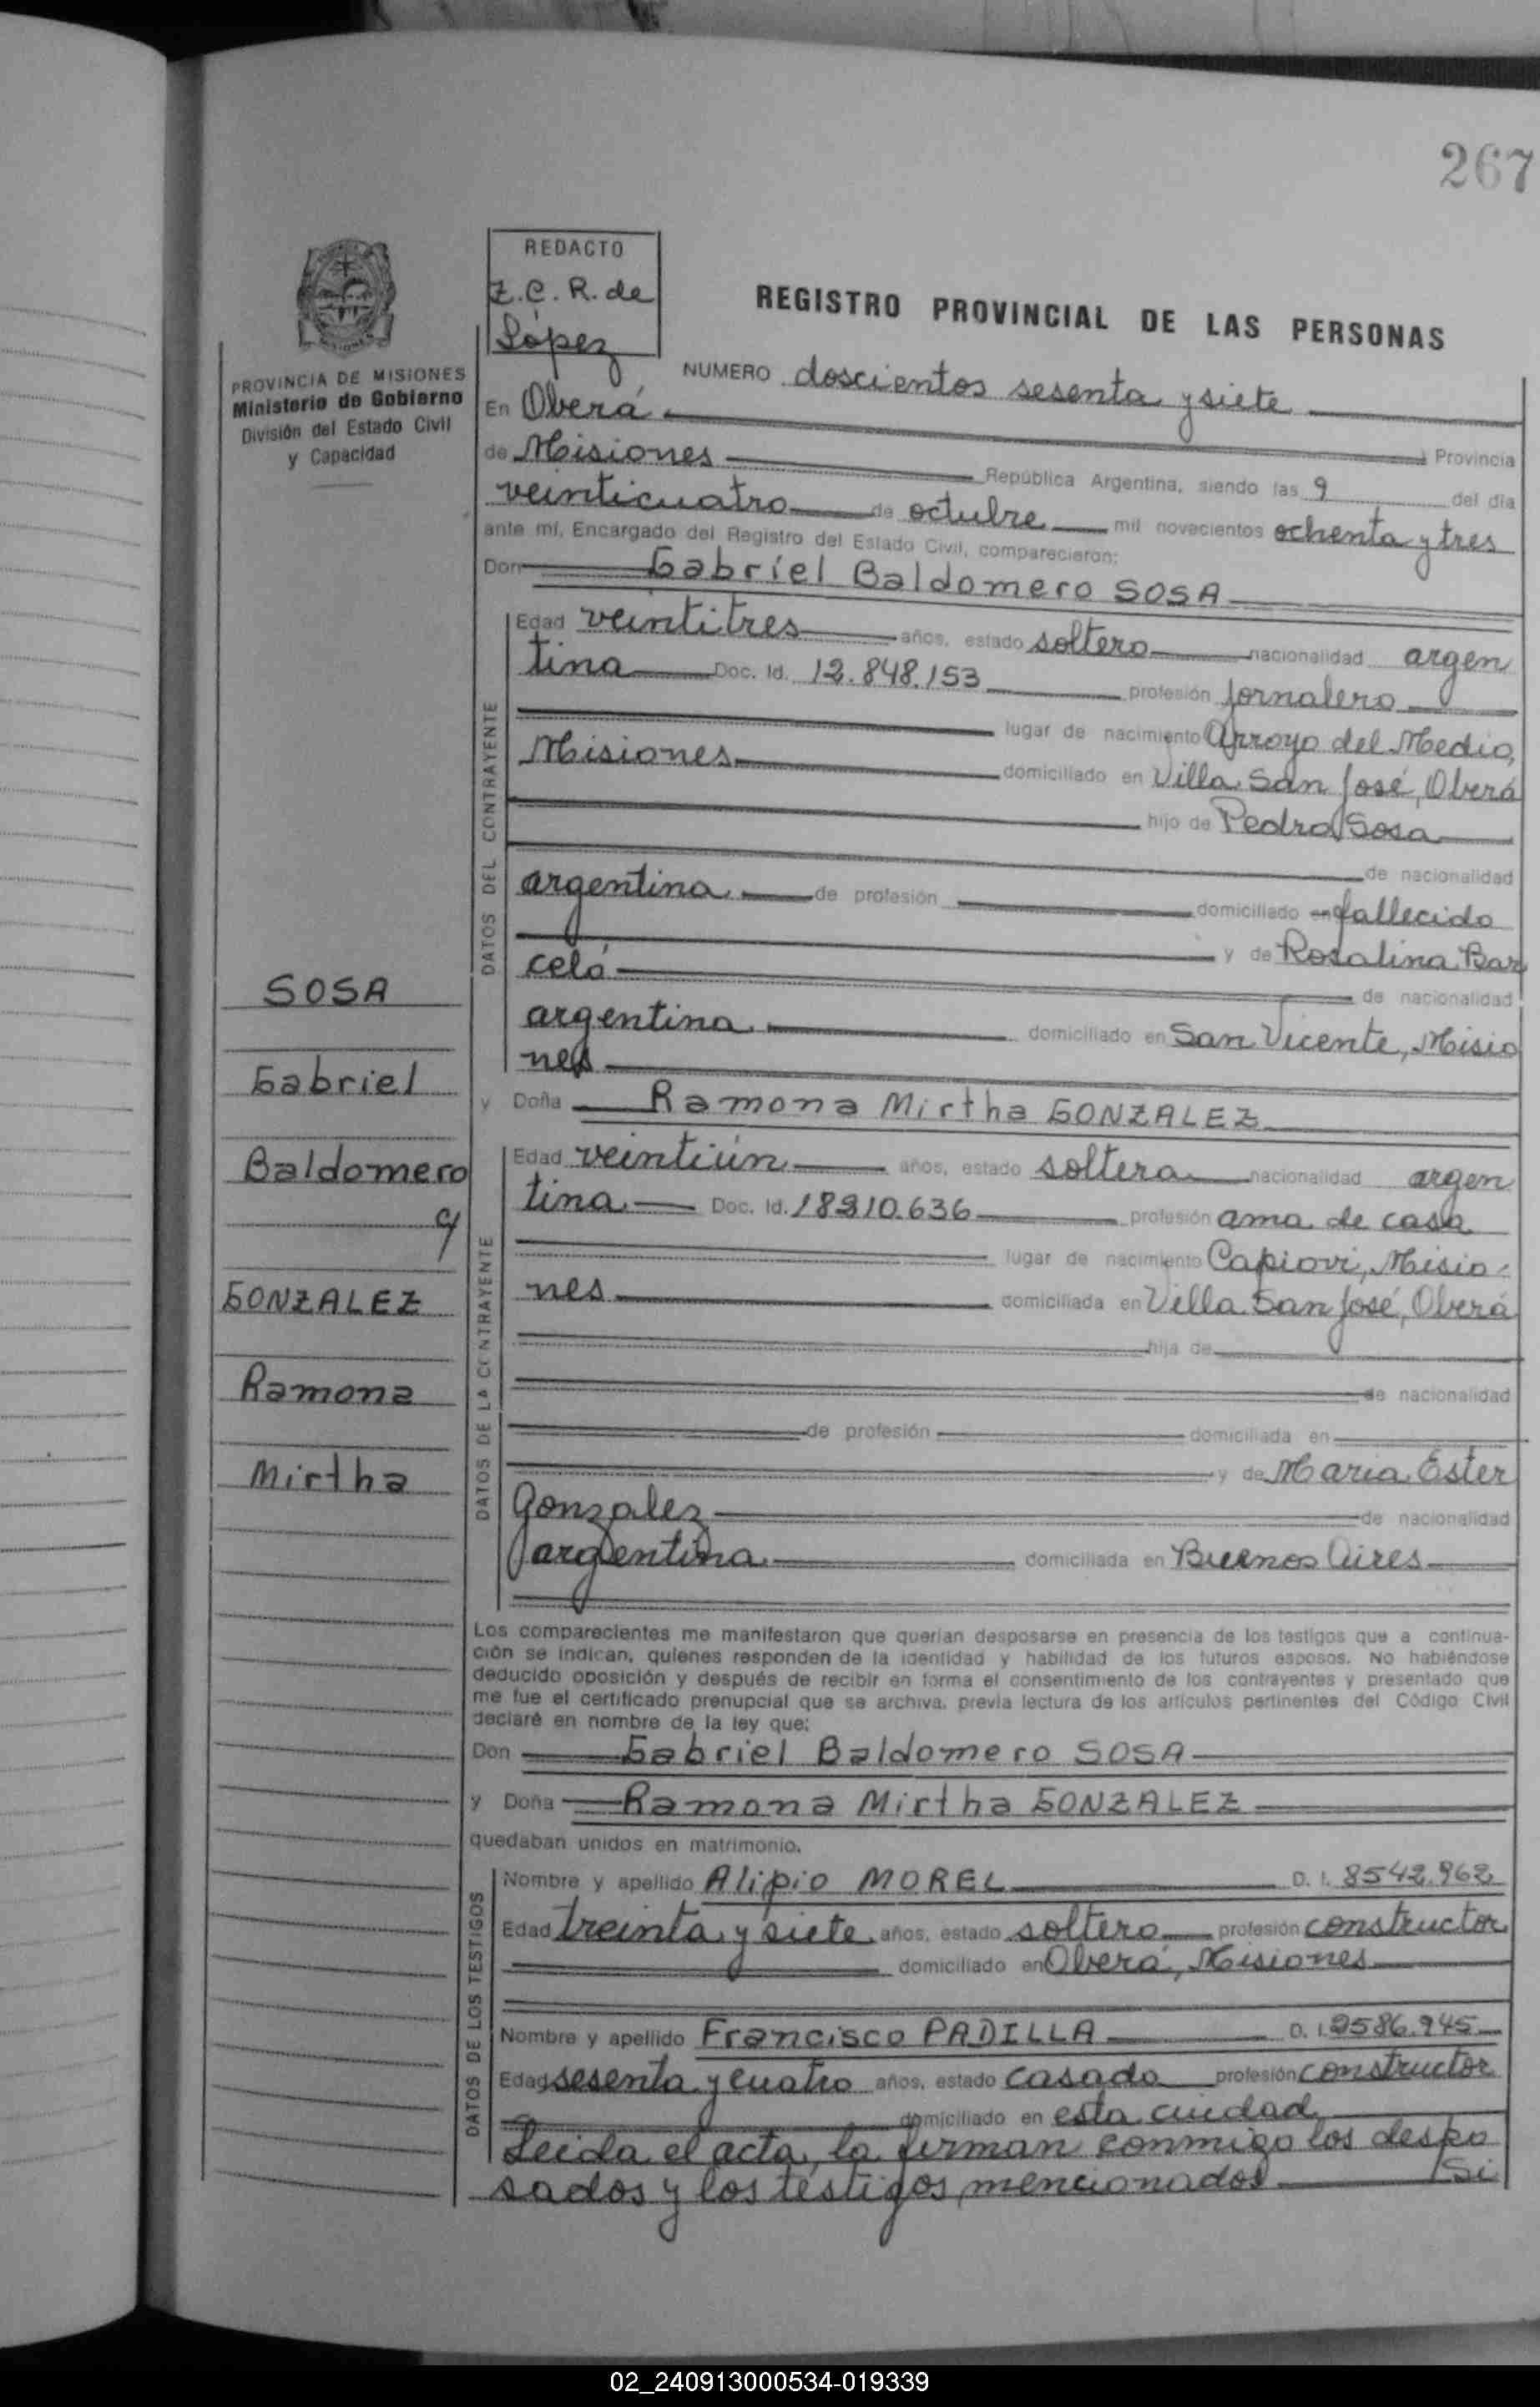 267
REDACTO
Z.C.R. de
López
REGISTRO PROVINCIAL DE LAS PERSONAS
PROVINCIA DE MISIONES
Ministerio de Gobierno
División del Estado Civil
y Capacidad
NUMERO doscientos sesenta y siete
En Oberá Provincia
de Misiones República Argentina, siendo las 9 del día
veinticuatro de octubre mil novecientos ochenta y tres
ante mí, Encargado del Registro del Estado Civil, comparecieron:
Don Gabriel Baldomero SOSA
DATOS DEL CONTRAYENTE
Edad veintitres años, estado soltero nacionalidad argen
tina Doc. Id. 12.848.153 profesión jornalero
lugar de nacimiento Arroyo del Medio,
Misiones domiciliado en Villa San José, Oberá
hijo de Pedro Sosa
de nacionalidad
argentina de profesión domiciliado en fallecido
y de Rosalina Bar
celó de nacionalidad
argentina domiciliado en San Vicente, Misio
nes
y Doña Ramona Mirtha GONZALEZ
DATOS DE LA CONTRAYENTE
Edad veintiún años, estado soltera nacionalidad argen
tina Doc. Id. profesión ama de casa
lugar de nacimiento Capiovi, Misio-
nes domiciliada en Villa San José, Oberá
hija de
de nacionalidad
de profesión domiciliada en
y de Maria Ester
Gonzalez de nacionalidad
argentina domiciliada en Buenos Aires
SOSA
Gabriel
Baldomero
y
GONZALEZ
Ramona
Mirtha
Los comparecientes me manifestaron que querían desposarse en presencia de los testigos que a continua-
ción se indican, quienes responden de la identidad y habilidad de los futuros esposos. No habiéndose
deducido oposición y después de recibir en forma el consentimiento de los contrayentes y presentado que
me fue el certificado prenupcial que se archiva, previa lectura de los artículos pertinentes del Código Civil
declaré en nombre de la ley que:
Don Gabriel Baldomero SOSA
y Doña Ramona Mirtha GONZALEZ
quedaban unidos en matrimonio.
DATOS DE LOS TESTIGOS
Nombre y apellido Alipio MOREL D. I. 8542.962
Edad treinta y siete años, estado soltero profesión constructor
domiciliado en Oberá, Misiones
Nombre y apellido Francisco PADILLA D. I. 2586.945
Edad sesenta y cuatro años, estado casado profesión constructor
domiciliado en esta ciudad
Leida el acta, la firman conmigo los despo
sados y los testigos mencionados /Si
02_240913000534-019339